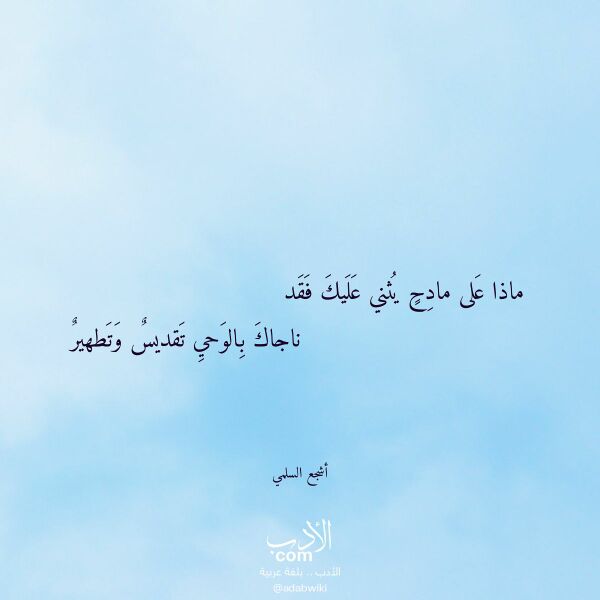 ماذا عَلى مادِحٍ يُثني عَلَيكَ فَقَد
ناجاكَ بِالوَحيِ تَقديسٌ وَتَطهيرٌ
أشجع السلمي
الأدب
.com
الأدب .. بلغة عربية
@adabwiki